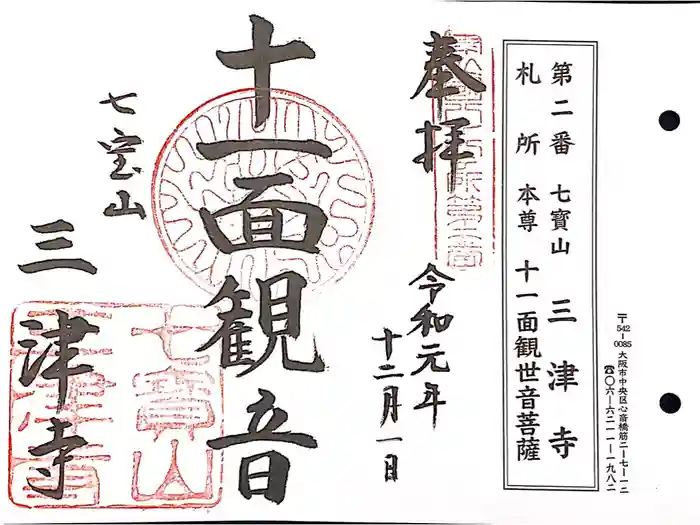 第二番 七寳山 三津寺
札所 本尊 十一面観世音菩薩
〒542-0085 大阪市中央区心斎橋筋二ー七ー一二
☎〇六ー六二一一ー一九八二
奉拝
令和元年
十二月一日
十一面観音
七宝山
三津寺
七寳山
三津寺